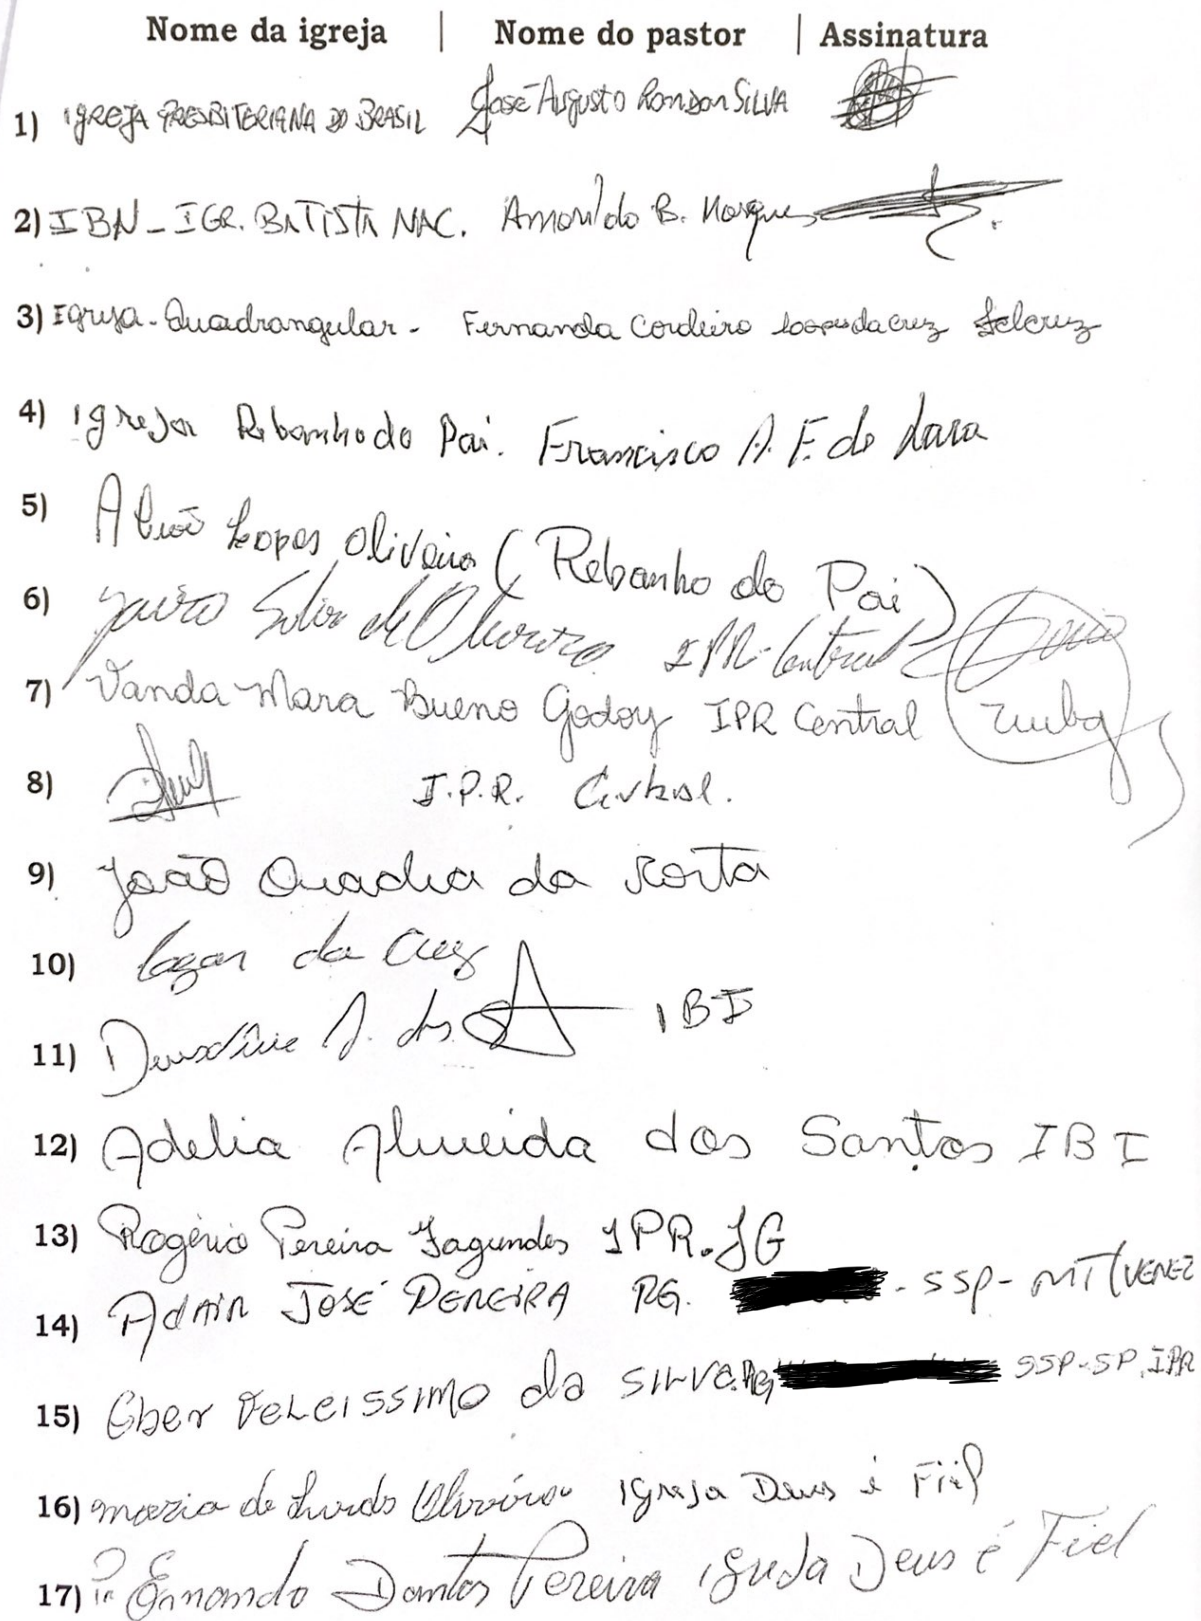 Nome da igreja | Nome do pastor | Assinatura
1) IGREJA PRESBITERIANA DO BRASIL José Augusto Rondon SILVA
2) IBN - IGR. BATISTA NAC. Amarildo B. Marques
3) Igreja - Quadrangular - Fernanda Cordeiro da cruz
4) Igreja Rebanho do Pai. Francisco A. F. de Lara
5) Lopes Oliveira (Rebanho do Pai)
6) de Oliveira IPR - Central
7) Vanda Mara Bueno Godoy IPR Central
8) I.P.R. Central.
9) João Quadra da
10) da Cruz
11) A. dos IBI
12) Adelia Almeida dos Santos IBI
13) Rogério Pereira Fagundes IPR. JG
14) ADAIR JOSÉ PEREIRA RG. - SSP - MT (VENEZ
15) Eber da SILVA. RG SSP - SP, IPR
16) maria de Igreja Deus é Fiel
17) Dantas Pereira igreja Deus é Fiel